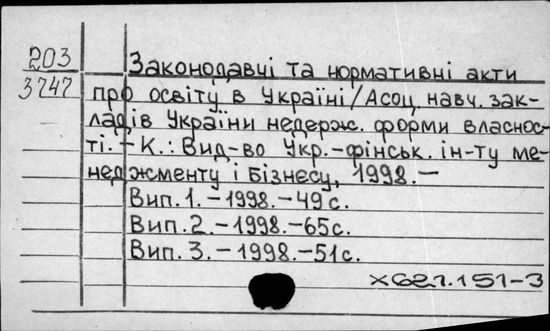 203
3747
Законодавчі та нормативні акти
про освіту в Україні/Асоц. навч. зак-
ладів України недерж. форми власнос-
ті. – К.: Вид-во Укр.-фінськ. ін-ту ме-
неджменту і бізнесу, 1998. –
Вип. 1. – 1998. – 49 с.
Вип. 2. – 1998. – 65с.
Вип. 3. – 1998. – 51с.
х621.151-3